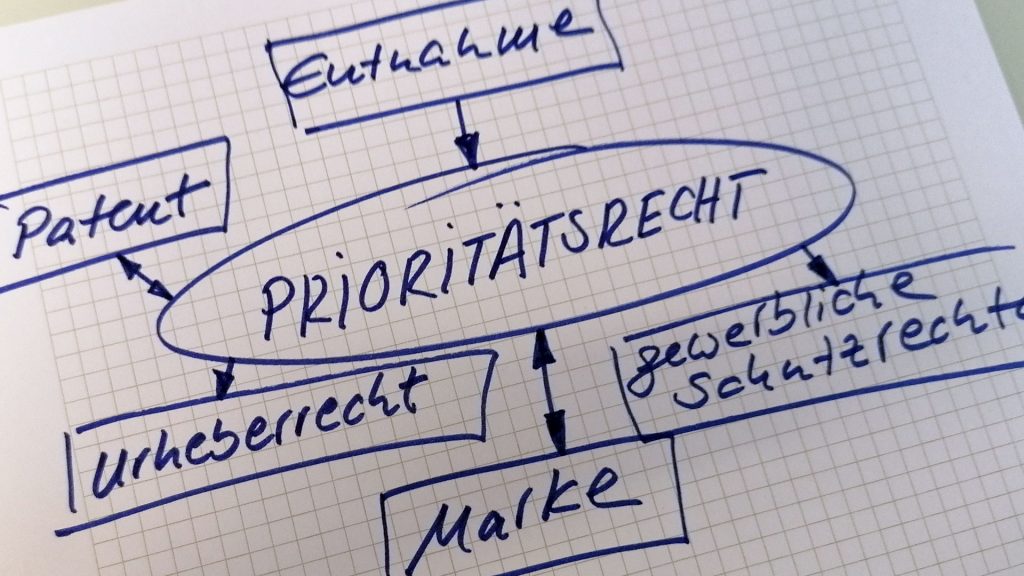 Entnahme
Patent
PRIORITÄTSRECHT
gewerbliche
Schutzrechte
Urheberrecht
Marke